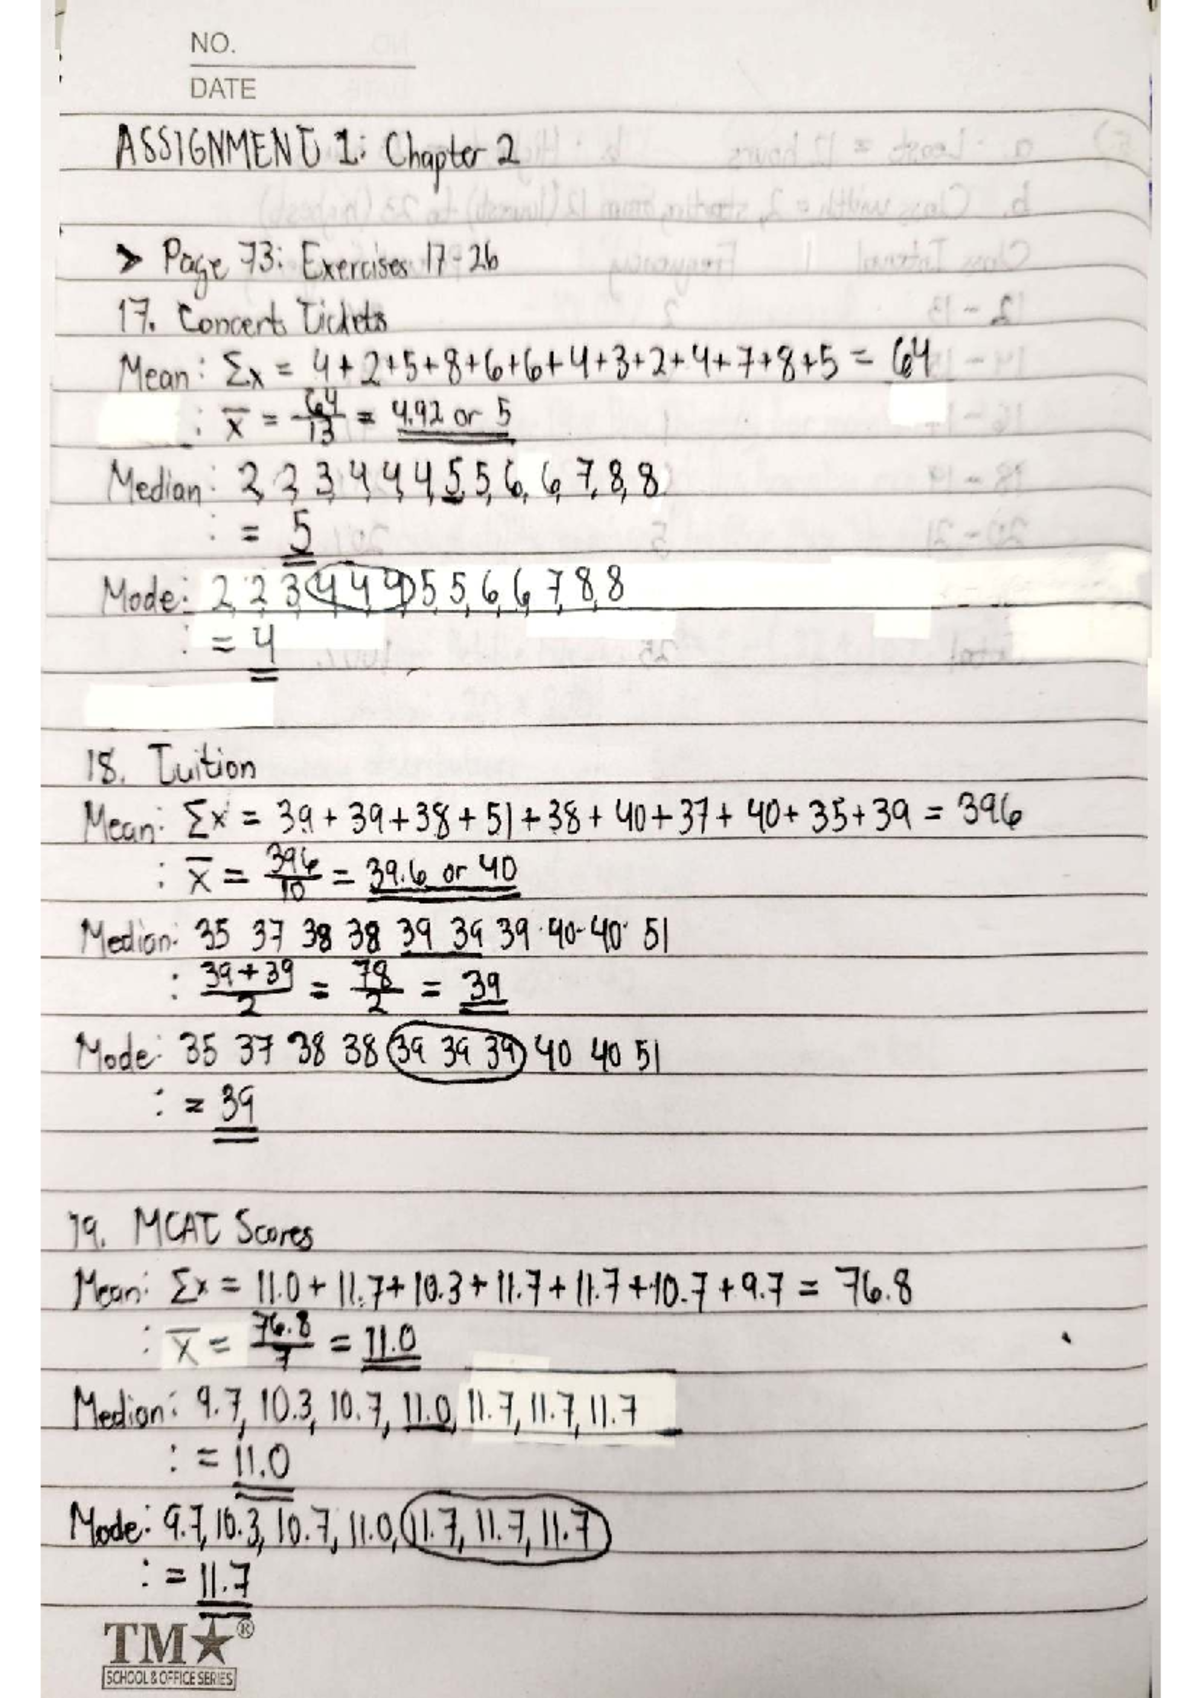 NO.
DATE
ASSIGNMENT 1: Chapter 2
> Page 73: Exercises 17-26
17. Concert Tickets
Mean: Σx = 4+2+5+8+6+6+4+3+2+4+7+8+5 = 64
: x̄ = 64/13 = 4.92 or 5
Median: 2, 2, 3, 4, 4, 4, 5, 5, 6, 6, 7, 8, 8
: = 5
Mode: 2, 2, 3, 4, 4, 4, 5, 5, 6, 6, 7, 8, 8
: = 4
18. Tuition
Mean: Σx = 39 + 39 + 38 + 51 + 38 + 40 + 37 + 40 + 35 + 39 = 396
: x̄ = 396/10 = 39.6 or 40
Median: 35 37 38 38 39 39 39 40 40 51
: 39+39/2 = 78/2 = 39
Mode: 35 37 38 38 39 39 39 40 40 51
: = 39
19. MCAT Scores
Mean: Σx = 11.0 + 11.7 + 10.3 + 11.7 + 11.7 + 10.7 + 9.7 = 76.8
: x̄ = 76.8/7 = 11.0
Median: 9.7, 10.3, 10.7, 11.0, 11.7, 11.7, 11.7
: = 11.0
Mode: 9.7, 10.3, 10.7, 11.0, 11.7, 11.7, 11.7
: = 11.7
TM★®
SCHOOL & OFFICE SERIES